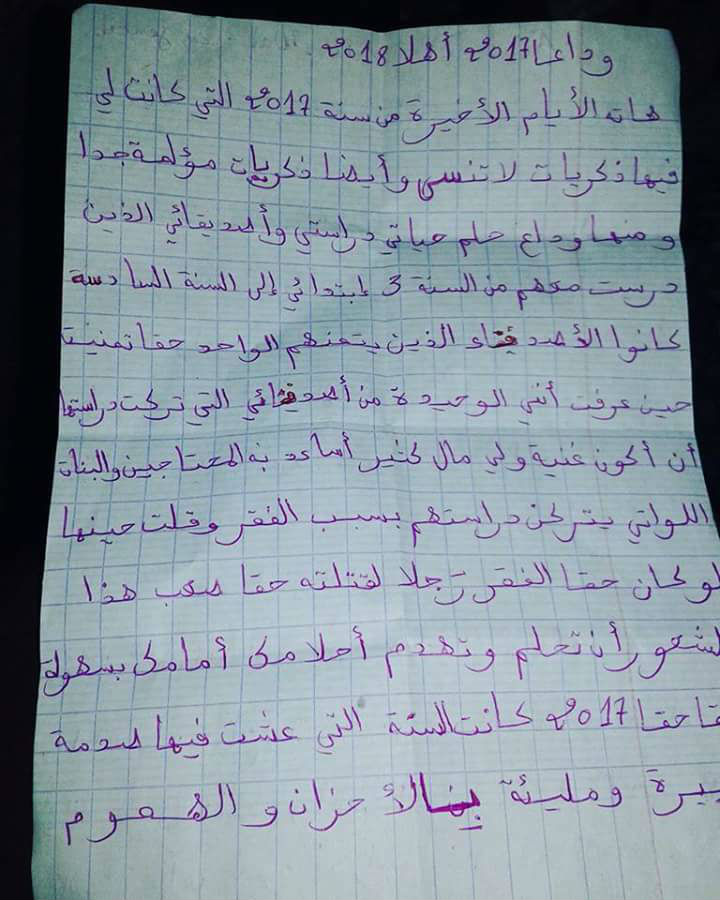 وداعا 2017 أهلا 2018.
هاته الأيام الأخيرة من سنة 2017 التي كانت لي
فيها ذكريات لا تنسى وأيضا ذكريات مؤلمة جدا
ومنها وداع حلم حياتي دراستي وأصديقائي الذين
درست معهم من السنة 3 إبتدائي إلى السنة السادسة
كانوا الأصدقاء الذين يتمنهم الواحد حقا تمنيت
حين عرفت أنني الوحيدة من أصدقائي التي تركت دراستها
أن أكون غنية ولي مال كثير أساعد به المحتاجين والبنات
اللواتي يتركن دراستهم بسبب الفقر وقلت حينها
لوكان حقا الفقر رجلا لقتلته حقا صعب هذا
لشعور أن تحلم وتهدم أحلامك أمامك بسهولة
قا حقا 2017 كانت السنة التي عشت فيها صدمة
بيرة ومليئة بالأحزان والهموم